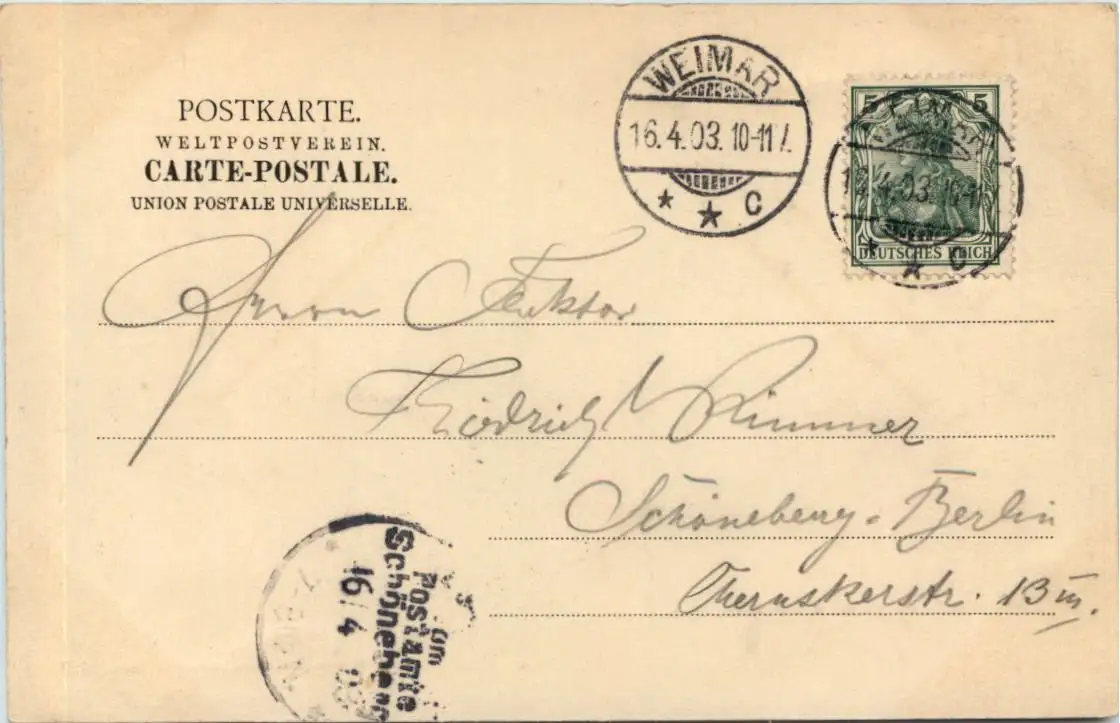 POSTKARTE.
WELTPOSTVEREIN.
CARTE-POSTALE.
UNION POSTALE UNIVERSELLE.
WEIMAR
16.4.03. 10-11 V.
C
5 5
DEUTSCHES REICH
WEIMAR
16.4.03. 10-11 V.
C
Herrn
Friedrich
Schöneberg-Berlin
Cheruskerstr. 13 III.
am
Postamte
Schöneberg
16/4 03